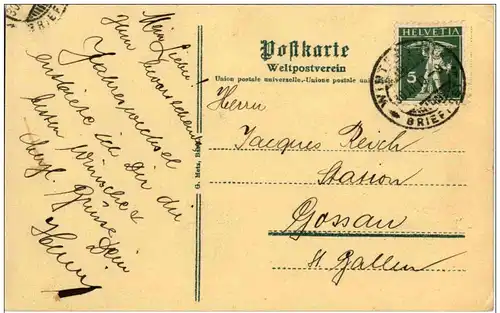 Mein Lieber!
Zum bevorstehenden
Jahreswechsel
entbiete ich Dir die
besten Wünsche &
herzl. Grüsse Dein
Postkarte
Weltpostverein
Union postale universelle.-Unione postale
HELVETIA
5
BRIEF
BRIEF
G. Metz,
Herrn
Jacques Resch
Station
Gossau
St. Gallen